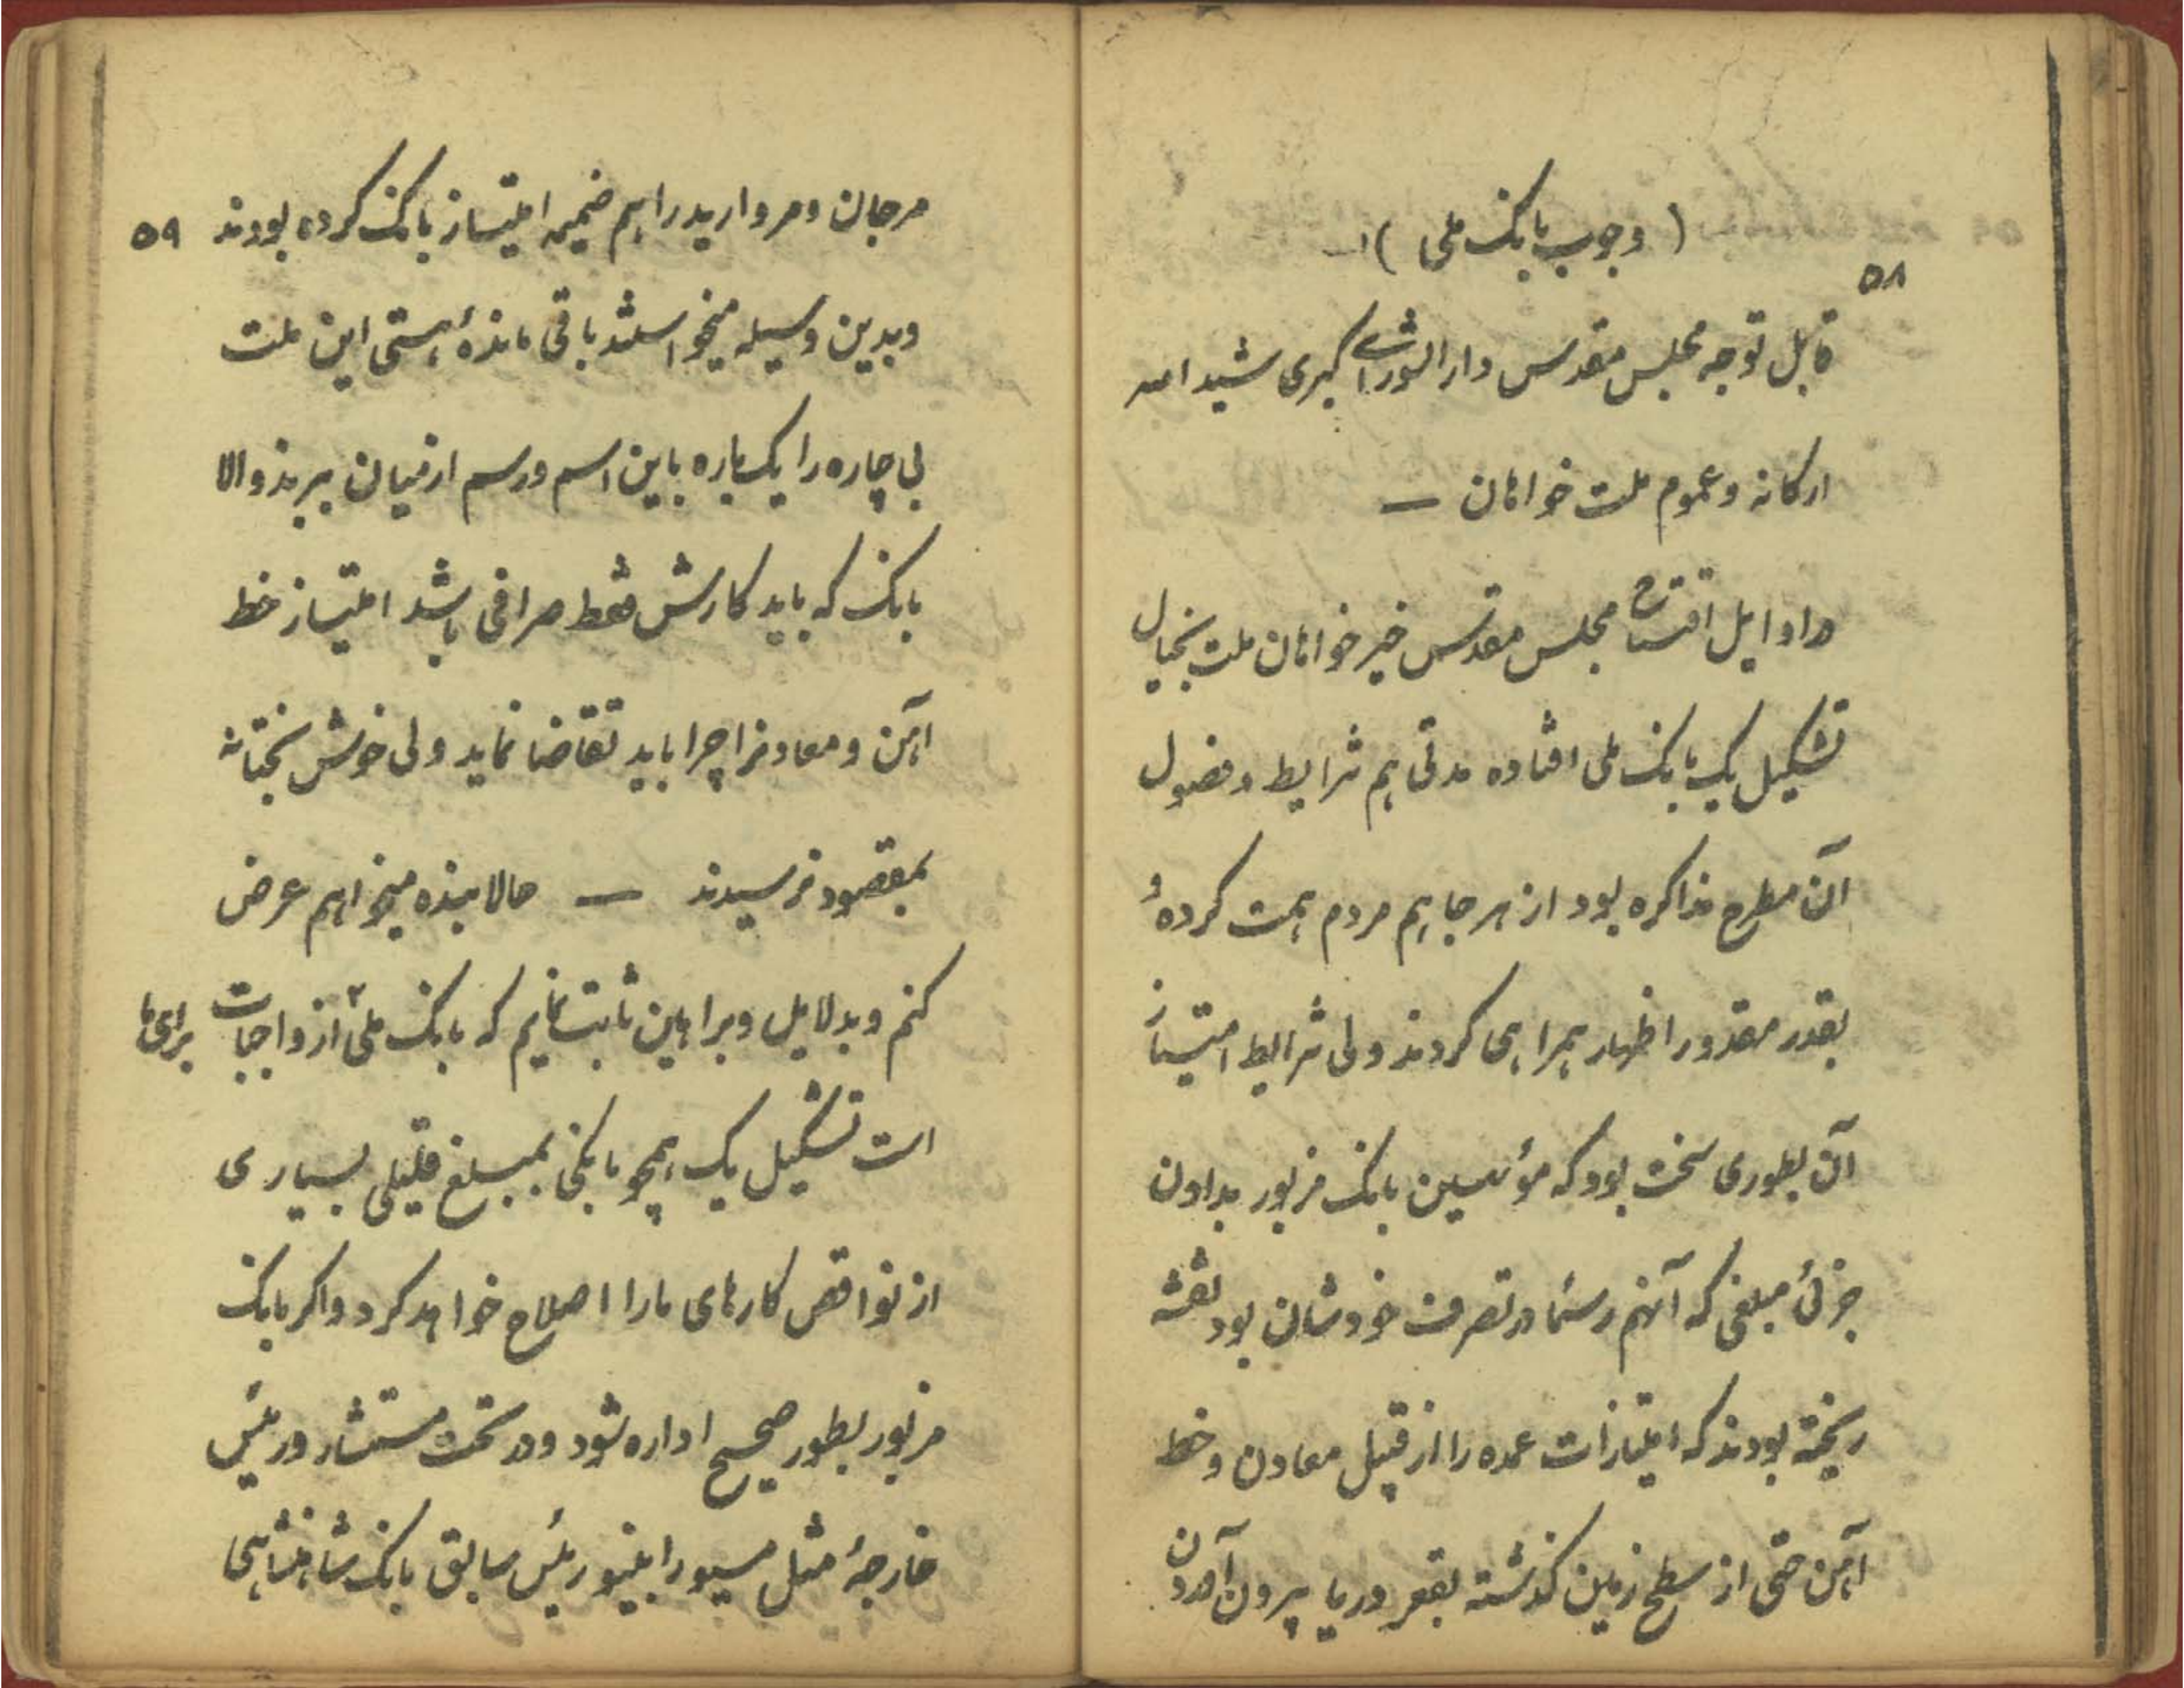 ( وجوب بانک ملی )
۵۸
قابل توجه مجلس مقدس دارالشورای کبری شید الله
ارکانه و عموم ملت خواهان —
در اوایل افتتاح مجلس مقدس خیرخواهان ملت بخیال
تشکیل یک بانک ملی افتاده مدتی هم شرایط و فصول
آن مطرح مذاکره بود از هر جا هم مردم همت کردهٔ
بقدر مقدور اظهار همراهی کردند ولی شرایط امتیاز
آن بطوری سخت بود که مؤسسین بانک مزبور بدادن
جزئی مبلغی که آنهم رسماً در تصرف خودشان بود نقشه
ریخته بودند که امتیازات عمده را از قبیل معادن و خط
آهن حتی از سطح زمین گذشته بقعر دریا بیرون آوردن
مرجان و مروارید را هم ضمیمه امتیاز بانک کرده بودند
۵۹
و بدین وسیله میخواستند باقی ماندهٔ هستی این ملت
بی چاره را یک باره باین اسم و رسم از میان ببرند والا
بانک که باید کارش فقط صرافی باشد امتیاز خط
آهن و معادنرا چرا باید تقاضا نماید ولی خوش بختانه
بمقصود نرسیدند — حالا بنده میخواهم عرض
کنم و بدلایل و براهین ثابت نمایم که بانک ملی از واجبات برای ما
است تشکیل یک همچو بانکی بمبلغ قلیلی بسیاری
از نواقص کارهای ما را اصلاح خواهد کرد و اکر بانک
مزبور بطور صحیح اداره شود و در تحت مستشار و رئیس
خارجهٔ مثل مسیو رابینو رئیس سابق بانک شاهنشاهی